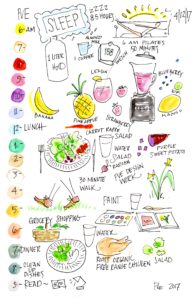 PVE
6-AM
SLEEP
ZZZZ
8.5 HOURS
4/12/17
1 LITER
H2O
ALMOND
MILK
1 COPPER
6 AM PILATES
50 MINUTES
7
8
9
10
11
12-LUNCH
1
2
3
4
5
6
7 DINNER
8 CLEAN UP
DISHES
9-READ~
LEMON
BLUEBERRY
BANANA
PINEAPPLE
STRAWBERRY
MANGO
CARROT RAPPE
SALAD
WATER
SALAD
RADISH
PURPLE
SWEET POTATO
PVE DESIGN
WORK
30 MINUTE
WALK
PAINT
GROCERY SHOPPING
WATER
ROAST ORGANIC
FREE RANGE CHICKEN
SALAD
PVE 2017